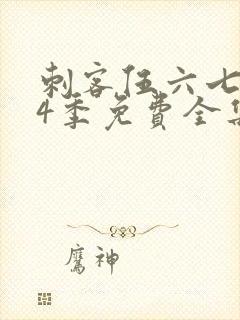 刺客伍六七
4季免费全集
鹰神